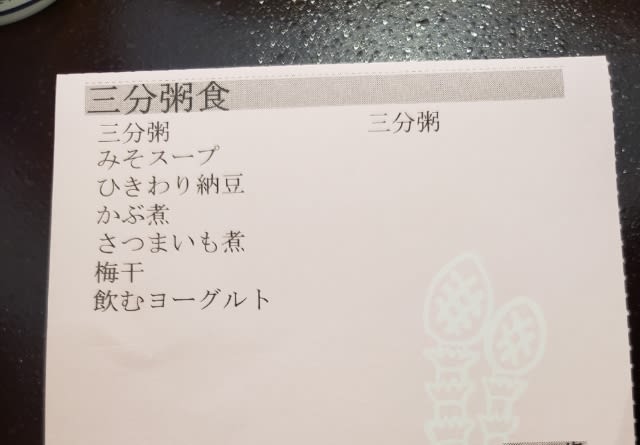 三分粥食
三分粥 三分粥
みそスープ
ひきわり納豆
かぶ煮
さつまいも煮
梅干
飲むヨーグルト